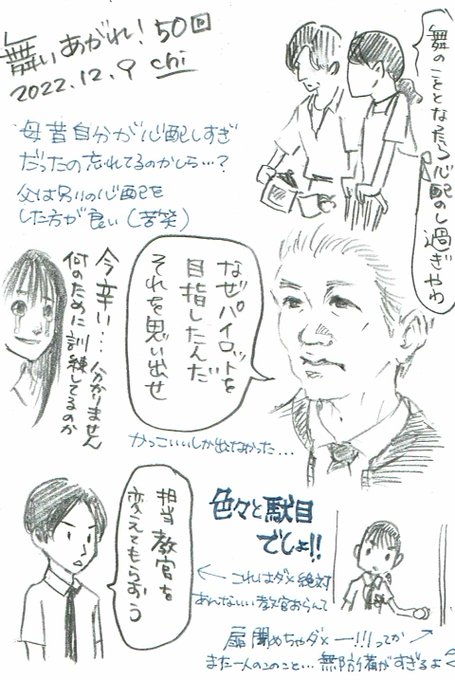 舞いあがれ！50回
2022.12.9 chi
舞のこととなったら心配のし過ぎやわ
母昔自分が心配しすぎ
だったの忘れてるのかしら…？
父は別の心配を
した方が良い（苦笑）
なぜパイロットを
目指したんだ
それを思い出せ
今辛い…分かりません
何のために訓練してるのか
かっこいいしか出なかった…
担当教官を
変えてもらおう
色々と駄目
でしょ!!
←これはダメ絶対
あんないい教官おらんて
扉閉めちゃダメー!!!ってか
また一人のこのこと…無防備がすぎるよ